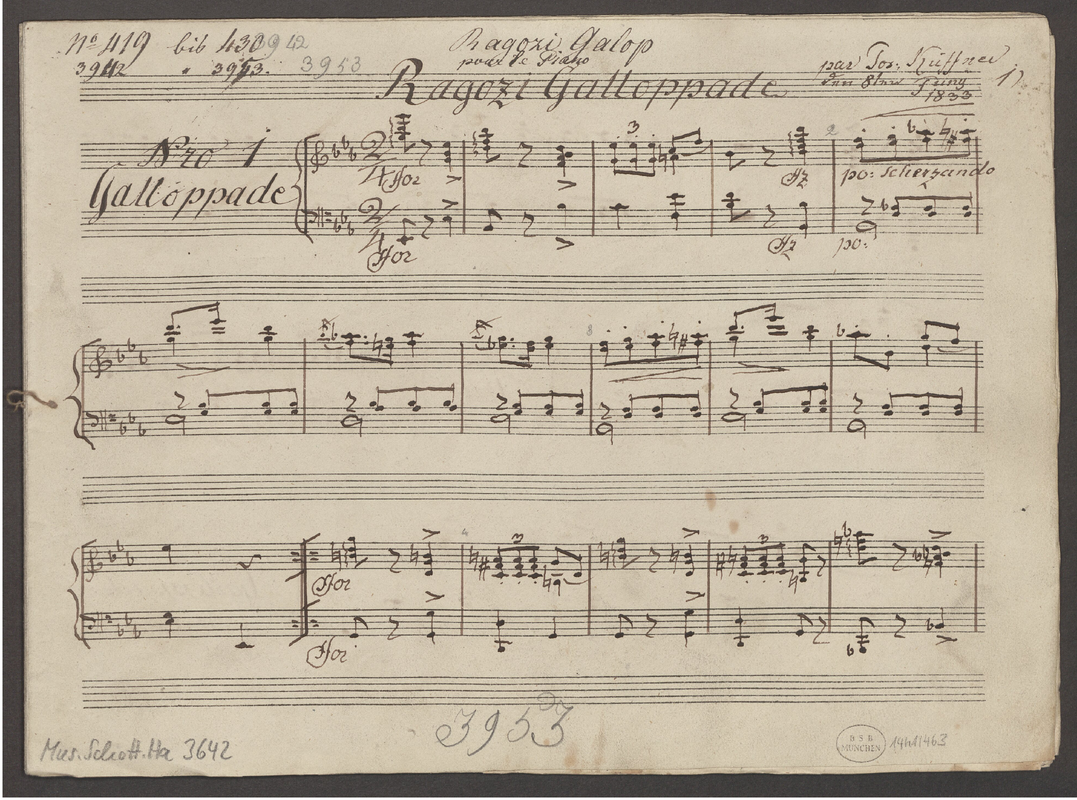 Nº 419 bib 430 3942
3942 " 3953. 3953
Ragozi Galop
pour le Piano
Ragozi Galloppade
par Jos: Küffner
den 8ten Juny
1833
1).
Nro 1
Galloppade
2/4 for
3
fz
2
po: scherzando
2/4 for
fz
po:
8
for
4
3
3
for
3953
Mus. Schott. Ha 3642
BSB
MÜNCHEN
14h1/463